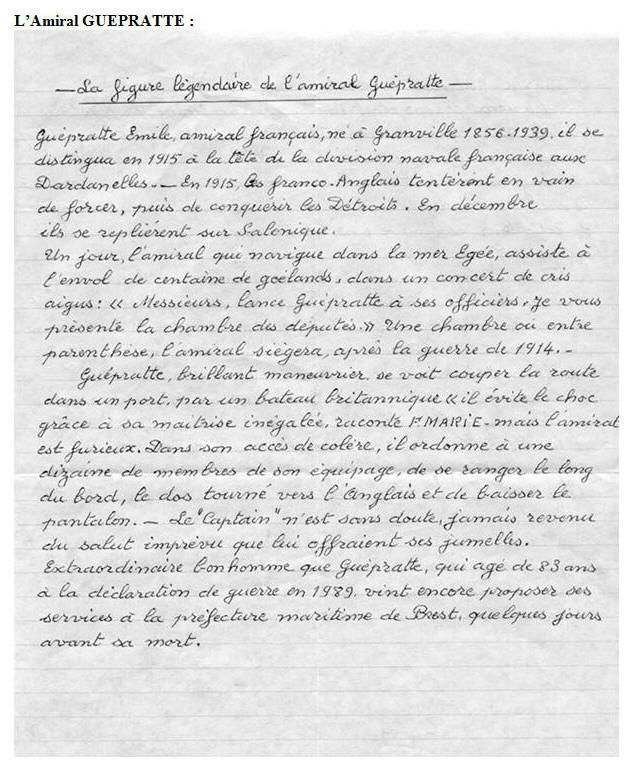 L'Amiral GUEPRATTE :
— La figure légendaire de l'amiral Guépratte —
Guépratte Emile, amiral français, né à Granville 1856-1939, il se
distingua en 1915 à la tête de la division navale française aux
Dardanelles. — En 1915, les franco-Anglais tentèrent en vain
de forcer, puis de conquérir les Détroits. En décembre
ils se replièrent sur Salonique.
Un jour, l'amiral qui navigue dans la mer Egée, assiste à
l'envol de centaine de goélands, dans un concert de cris
aigus : « Messieurs, lance Guépratte à ses officiers, je vous
présente la chambre des députés. » Une chambre où entre
parenthèse, l'amiral siègera, après la guerre de 1914. -
Guépratte, brillant maneuvrier, se voit couper la route
dans un port, par un bateau britannique « il évite le choc
grâce à sa maitrise inégalée, raconte F. MARIE - mais l'amiral
est furieux. Dans son accès de colère, il ordonne à une
dizaine de membres de son équipage, de se ranger le long
du bord, le dos tourné vers l'Anglais et de baisser le
pantalon. — Le "Captain" n'est sans doute, jamais revenu
du salut imprévu que lui offraient ses jumelles.
Extraordinaire bonhomme que Guépratte, qui agé de 83 ans
à la déclaration de guerre en 1989, vint encore proposer ses
services à la préfecture maritime de Brest, quelques jours
avant sa mort.